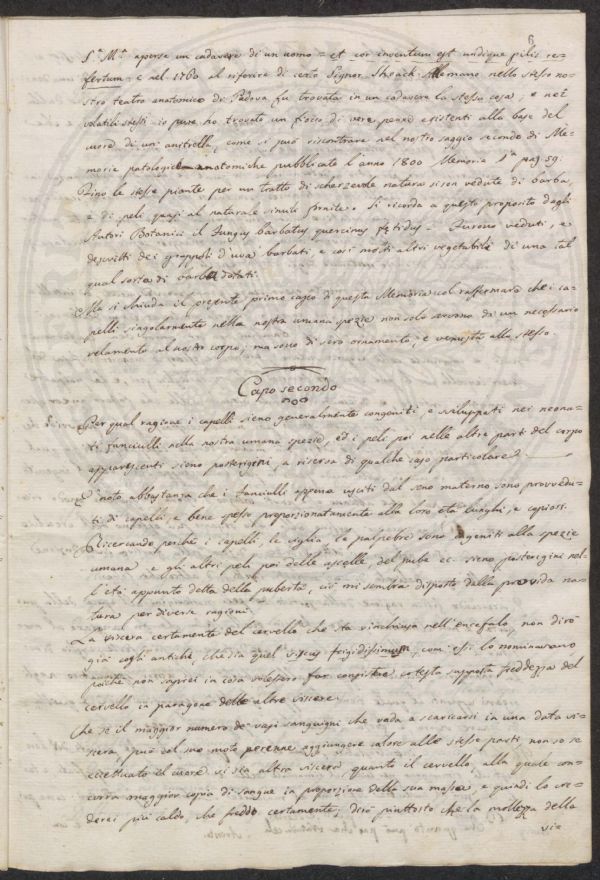 6
S.ª M.ª aperse un cadavere di un uomo = et cor inventum est undique pilis re-
fertum = e nel 1760 al riferire di certo Signor Alemano nello stesso no-
stro teatro anatomico di Padova fu trovata in un cadavere la stessa cosa; e nei
volatili stessi io pure ho trovato un fiocco di vere penne esistenti alla base del
cuore di un' anitrella, come si può riscontrare nel nostro saggio secondo di Me-
morie patologico-anatomiche pubblicate l'anno 1800 Memoria 1ª pag. 59:
Fino le stesse piante per un tratto di scherzevole natura si son vedute di barba,
e di peli quasi al naturale simili fornite. Si ricorda a questo proposito dagli
Autori Botanici il Fungus barbatus quercinus fetidus. Furono veduti, e
descritti dei grappoli d'uva barbati, e così molti altri vegetabili di una tal
qual sorte di barba dotati.
Ma si chiuda il presente primo capo di questa Memoria col raffermare che i ca-
pelli singolarmente nella nostra umana spezie non solo servono di un necessario
velamento al nostro corpo, ma sono di vero ornamento, e venustà allo stesso.
Capo secondo
Per qual ragione i capelli sieno generalmente congeniti, e sviluppati nei neona-
ti fanciulli nella nostra umana spezie, ed i peli poi nelle altre parti del corpo
appariscenti sieno postergeni, a riserva di qualche caso particolare?
È noto abbastanza che i fanciulli appena usciti dal seno materno sono provvedu-
ti di capelli, e bene spesso proporzionatamente alla loro età lunghi, e copiosi.
Ricercando perchè i capelli, le ciglia, le palpebre sono ingeniti alla spezie
umana e gli altri peli poi delle ascelle, del pube ec. sieno postergini nel-
l'età appunto detta della pubertà, ciò mi sembra disposto dalla provvida na-
tura per diverse ragioni.
La viscera certamente del cervello che sta rinchiusa nell'encefalo, non dirò
già cogli antichi, che sia quel viscus frigidissimum, com' essi lo nominavano
poichè non saprei in cosa volessero far consistere cotesta supposta freddezza del
cervello in paragone delle altre viscere.
Che se il maggior numero de' vasi sanguigni che vada a scaricarsi in una data vi-
scera, può col suo moto perenne aggiungere calore alle stesse parti, non so se
eccettuato il cuore vi sia altra viscera, quanto il cervello, alla quale con-
corra maggior copia di sangue in proporzione della sua massa, e quindi lo cre-
derei più caldo, che freddo certamente; dirò piuttosto che la mollezza della
vis-